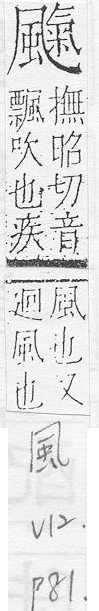 撫昭切音
飄吹也疾
風也又
迴風也
風
V12.
P81.